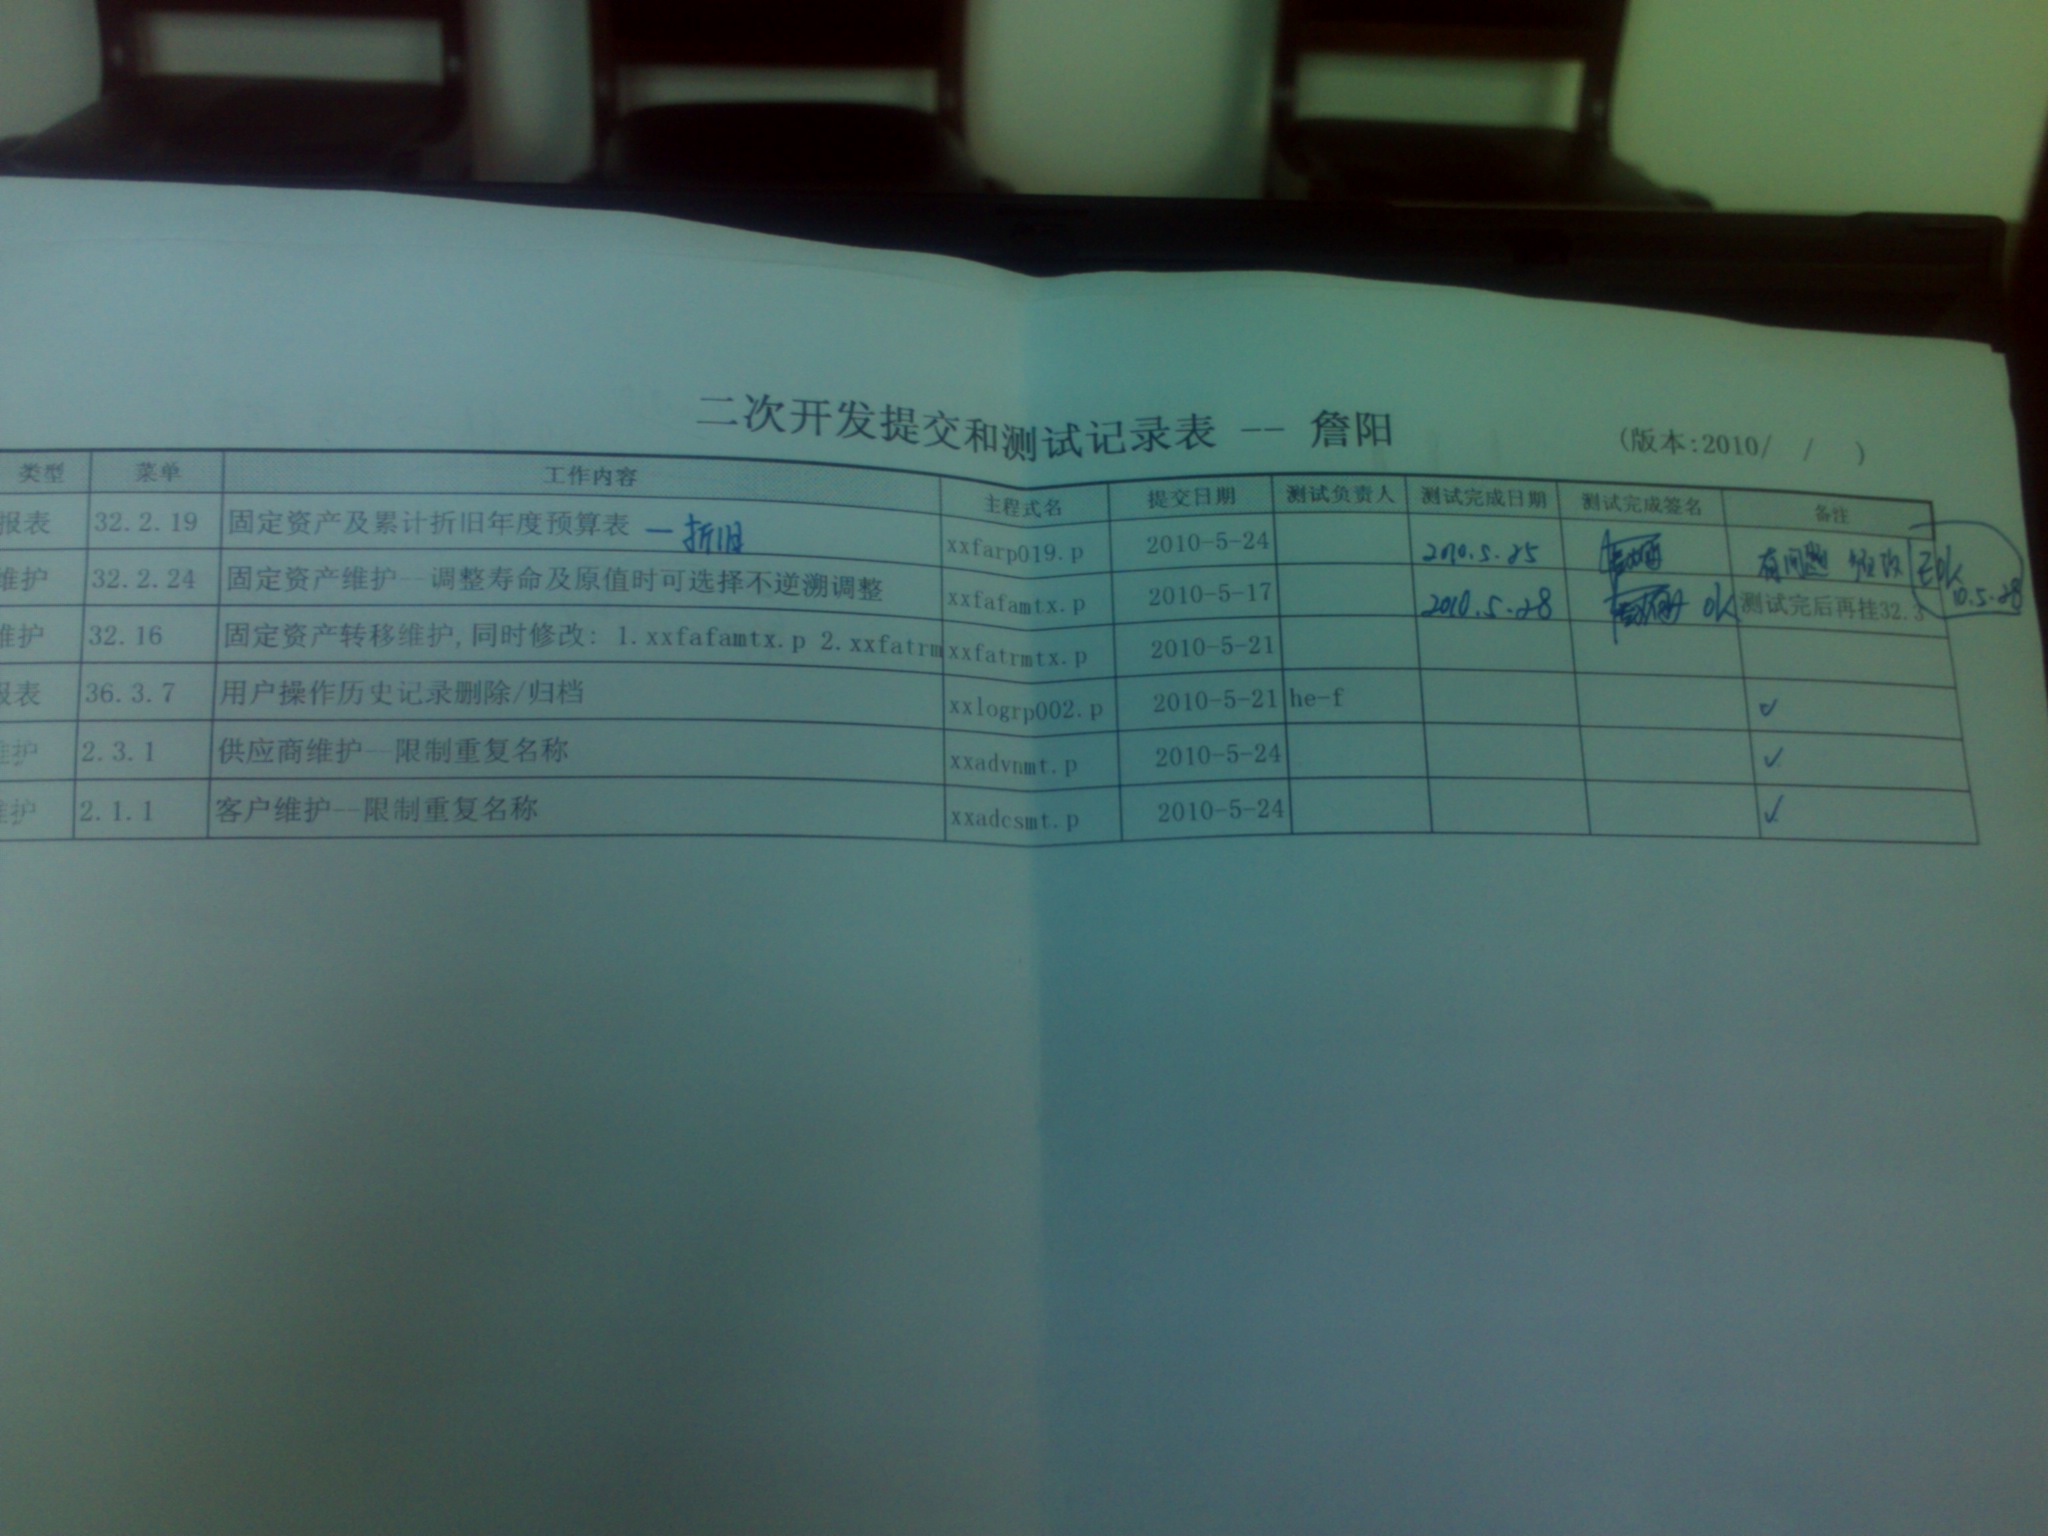 二次开发提交和测试记录表 -- 詹阳 (版本:2010/ / )
类型 菜单 工作内容 主程式名 提交日期 测试负责人 测试完成日期 测试完成签名 备注
报表 32.2.19 固定资产及累计折旧年度预算表 —折旧 xxfarp019.p 2010-5-24 2010.5.25 有问题 修改 已OK 10.5.28
维护 32.2.24 固定资产维护--调整寿命及原值时可选择不逆溯调整 xxfafamtx.p 2010-5-17 2010.5.28 OK 测试完后再挂32.3
维护 32.16 固定资产转移维护,同时修改: 1.xxfafamtx.p 2.xxfatrm xxfatrmtx.p 2010-5-21
报表 36.3.7 用户操作历史记录删除/归档 xxlogrp002.p 2010-5-21 he-f ✓
维护 2.3.1 供应商维护--限制重复名称 xxadvnmt.p 2010-5-24 ✓
维护 2.1.1 客户维护--限制重复名称 xxadcsmt.p 2010-5-24 ✓